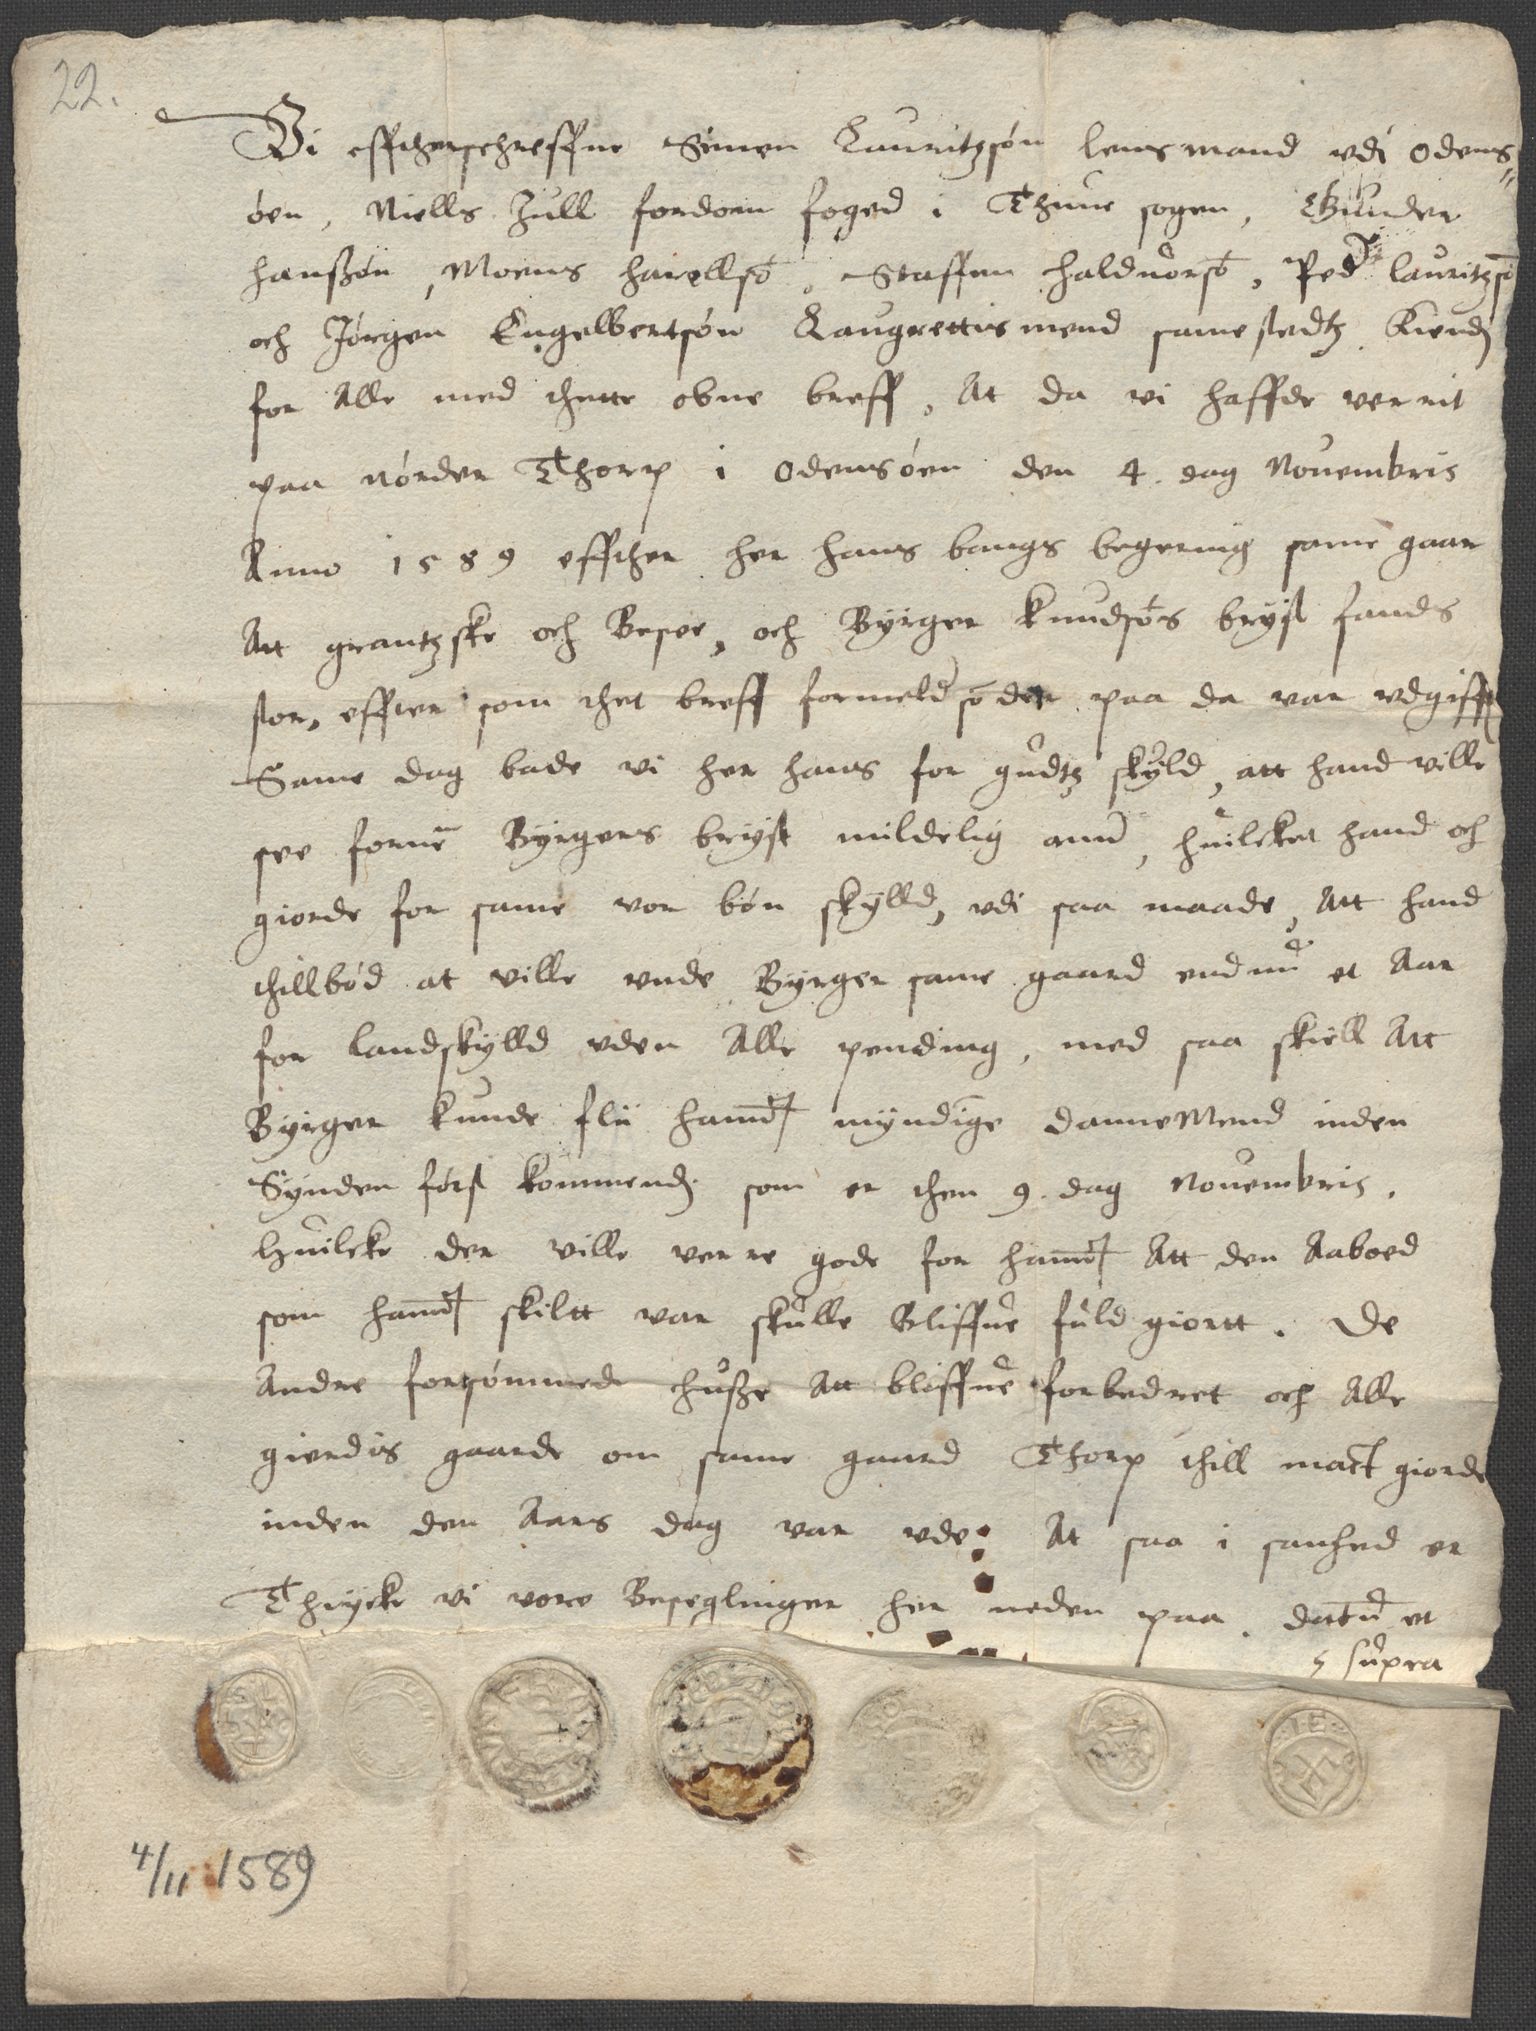 22.
Vi effthershreffne Simen Lauritzsøn lensmand vdi Odens=
øen, Niells Jull fordom foged i Thune sogen, Gunder
hanszøn, Moens harellsø, Staffen haldvorsø, Ped lauritzsø
och Jørgen Engelbertsøn Laugrettis mend samestedtz Kiendis
for Alle med thette obne breff, At da vi haffde verrit
paa nørder Thorp i Odensøen den 4. dag Nouembris
Anno 1589 effther her hans bangs begering same gaar
Att grantzske och Besee, och Byrger knudsøs bryst fands
stor, effter som thet breff formeld sō der paa da var vdgifft
Same dag bade vi her hans for gudtz skyld, att hand ville
see fornē Byrgers bryst mildelig ann, huilcket hand och
giorde for same vor bøn skylld, vdi saa maade, Att hand
thillbød at ville vnde Byrger same gaard endnu et Aar
for landskylld vden Alle pending, med saa skiell Att
Byrger kunde flii hannd myndige danneMend inden
Synden først kommendis som er then 9. dag Nouembris.
huilcke der ville verre gode for hannd Att den Aaboed
som hannd skiltt var skulle Bliffue fuld giortt. De
Andre forsømmede husze Att bliffue forbedret och Alle
gierdis gaarde om same gaard Thorp thill mact giorde
inden den Aars dag var vde: At saa i sanhed er
Thrycke vi vore Beseglinger her neden paa. datū et
supra
4/11 1589